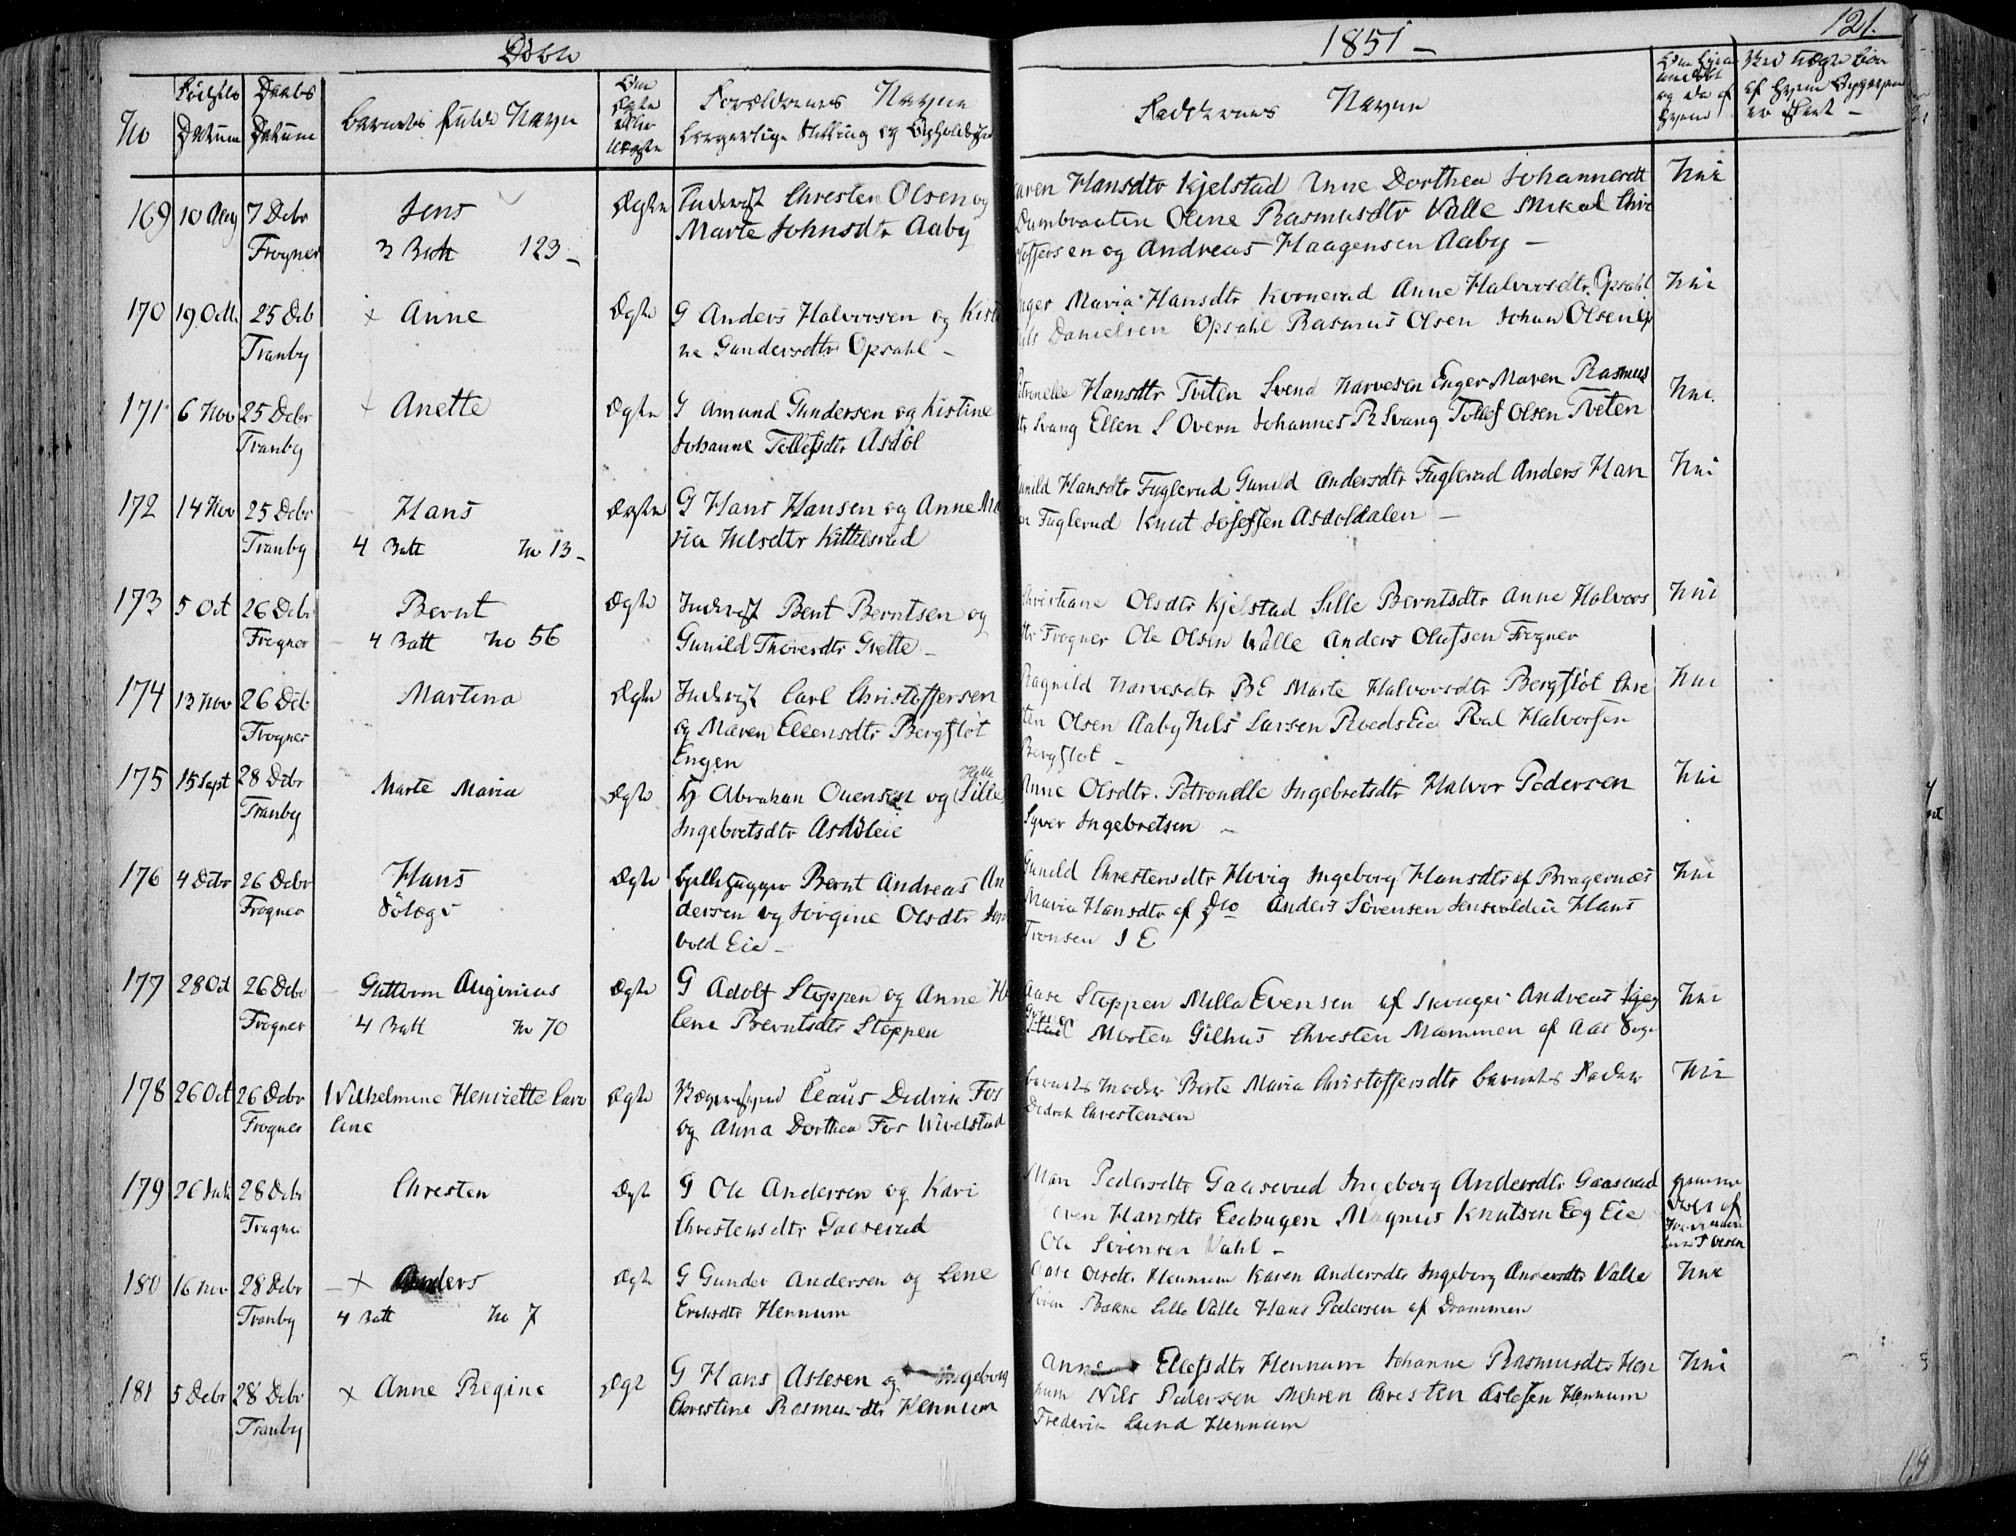 Døbte
1851 –
121.
No
Fødsels Datum
Daabs Datum
Barnets fulde Navn
Om Ægte eller Uægte
Forældrenes Navne
borgerlige Stilling og Opholdsted
Faddernes Navne
169 10 Aug 7 Debr Jens Ægte Inderst Chresten Olsen og
Frogner 3 Batt 123 – Marte Johnsdtr Aaby
Karen Hansdtr Kjelstad Anne Dorthea Johannesdt Nei
Dambraaten Oline Rasmusdtr Valle Mikal Chri
stoffersen og Andreas Haagensen Aaby –
170 19 Octb 25 Deb + Anne Ægte G Anders Halvorsen og Kisti
Tranby ne Gundersdtr Opsahl –
Inger Maria Hansdtr Kornerud Anne Halvorsdtr Opsahl Nei
Nils Danielsen Opsahl Rasmus Olsen Johan Olsen
171 6 Nov 25 Debr + Anette Ægte G Amund Gundersen og Kistine
Tranby Johanne Tollefsdtr Asdøl
Petronelle Hansdtr Tviten Svend Narvesen Enger Maren Rasmus Nei
dtr Svang Ellen S Overn Johannes R Svang Tollef Olsen Tveten
172 14 Nov 25 Debr Hans Ægte G Hans Hansen og Anne Ma
Tranby 4 Batt No 13 – ria Nelsdtr Kittilsrud
Gunild Hansdtr Fuglerud Gunild Andersdtr Fuglerud Anders Han Nei
sen Fuglerud Knut Josefsen Asdøldalen –
173 5 Oct 26 Debr Bernt Ægte Inderst Bent Berntsen og
Frogner 4 Batt No 56 Gunild Thoresdtr Grette –
Christiane Olsdtr Kjelstad Sille Berntsdtr Anne Halvors Nei
dtr Frogner Ole Olsen Walle Anders Olufsen Frogner
174 13 Nov 26 Deb Martina Ægte Inderst Carl Christoffersen
Frogner og Maren Ellensdtr Bergfløt
Engen
Ragnild Narvesdtr BE Marte Halvorsdtr Bergfløt Chre Nei
sten Olsen Aaby Nils Larsen RoedsEie Poul Halvorsen
Bergfløt –
175 15 Sept 28 Debr Marte Maria Ægte H Abraham Ouensen og (Sille) Helle
Tranby Ingebretsdtr Asdøleie
Anne Olsdtr. Petronelle Ingebretsdtr Halvor Pedersen Nei
Syver Ingebretsen –
176 4 Debr 26 Debr Hans Ægte Bernt Andreas An
Frogner dersen og Jørgine Olsdtr Jens
vold Eie –
Gunild Chrestensdtr Hovig Ingeborg Hansdtr af Bragernæs Nei
Maria Hansdtr af Do Anders Sørensen Jensvoldeie Hans
Tronsen J E
177 28 Oct 26 Debr Guttorm Auginius Ægte G Adolf Stoppen og Anne He
Frogner 4 Batt No 70 lene Berntsdtr Stoppen
Aase Stoppen Milla Evensen af Skouger Andreas Nei
Morten Gilhus Chresten Mammen af Aas Sogn
178 26 Oct 26 Debr Wilhelmine Henriette Caro Ægte Claus Didrik Fos
Frogner line og Anna Dorthea Fos Wivelstad
Barnets Moder Berte Maria Christoffersdtr Barnets Fader Nei
Didrik Chrestensen
179 26 Juli 28 Debr Chresten Ægte G Ole Andersen og Kari
Frogne Chrestensdtr Gaaserud
Mari Pedersdtr Gaaserud Ingeborg Andersdtr Gaaserud hjemme
Hansdtr Eeghagen Magnus Knutsen Eeg Eie døbt af
Ole Sørensen Vahl –
180 16 Nov 28 Debr + Anders Ægte G Gunder Andersen og Lene
Tranby 4 Batt No 7 Eriksdtr Hennum
Aase Olsdtr Hennum Karen Andersdtr Ingeborg Andersdtr Valle Nei
Bakke Lille Valle Hans Pedersen af Drammen
181 5 Debr 28 Debr + Anne Regine Ægte G Hans Aslesen og Ingeborg
Tranby Christine Rasmusdtr Hennum
Anne Ellefsdtr Hennum Johanne Rasmusdtr Hen Nei
num Nils Pedersen Mehren Chresten Aslesen Hennum
Frederik Lund Hennum